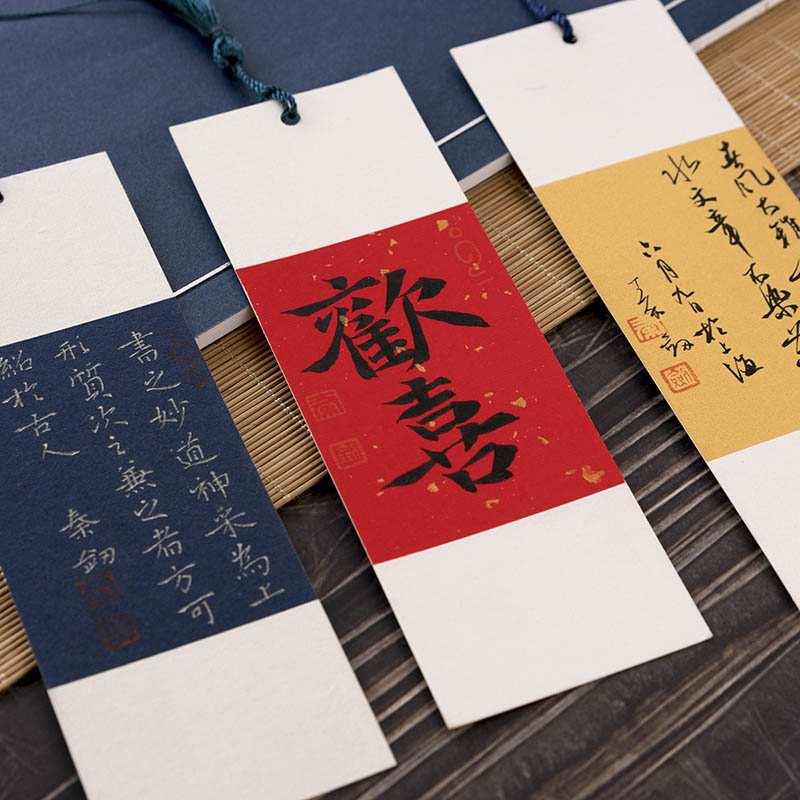 書之妙道神采為上
形質次之兼之者方可
紹於古人
秦釼
歡喜
春风大雅
水文章不染
六月九日於上海